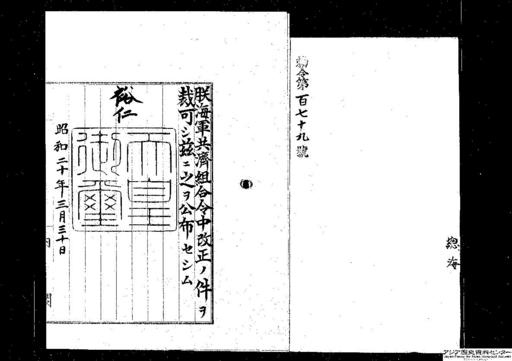 勅令第百七十九號
總
海
朕海軍共濟組合令中改正ノ件ヲ
裁可シ茲ニ之ヲ公布セシム
裕仁
天皇御璽
昭和二十年三月三十日
内閣
アジア歴史資料センター